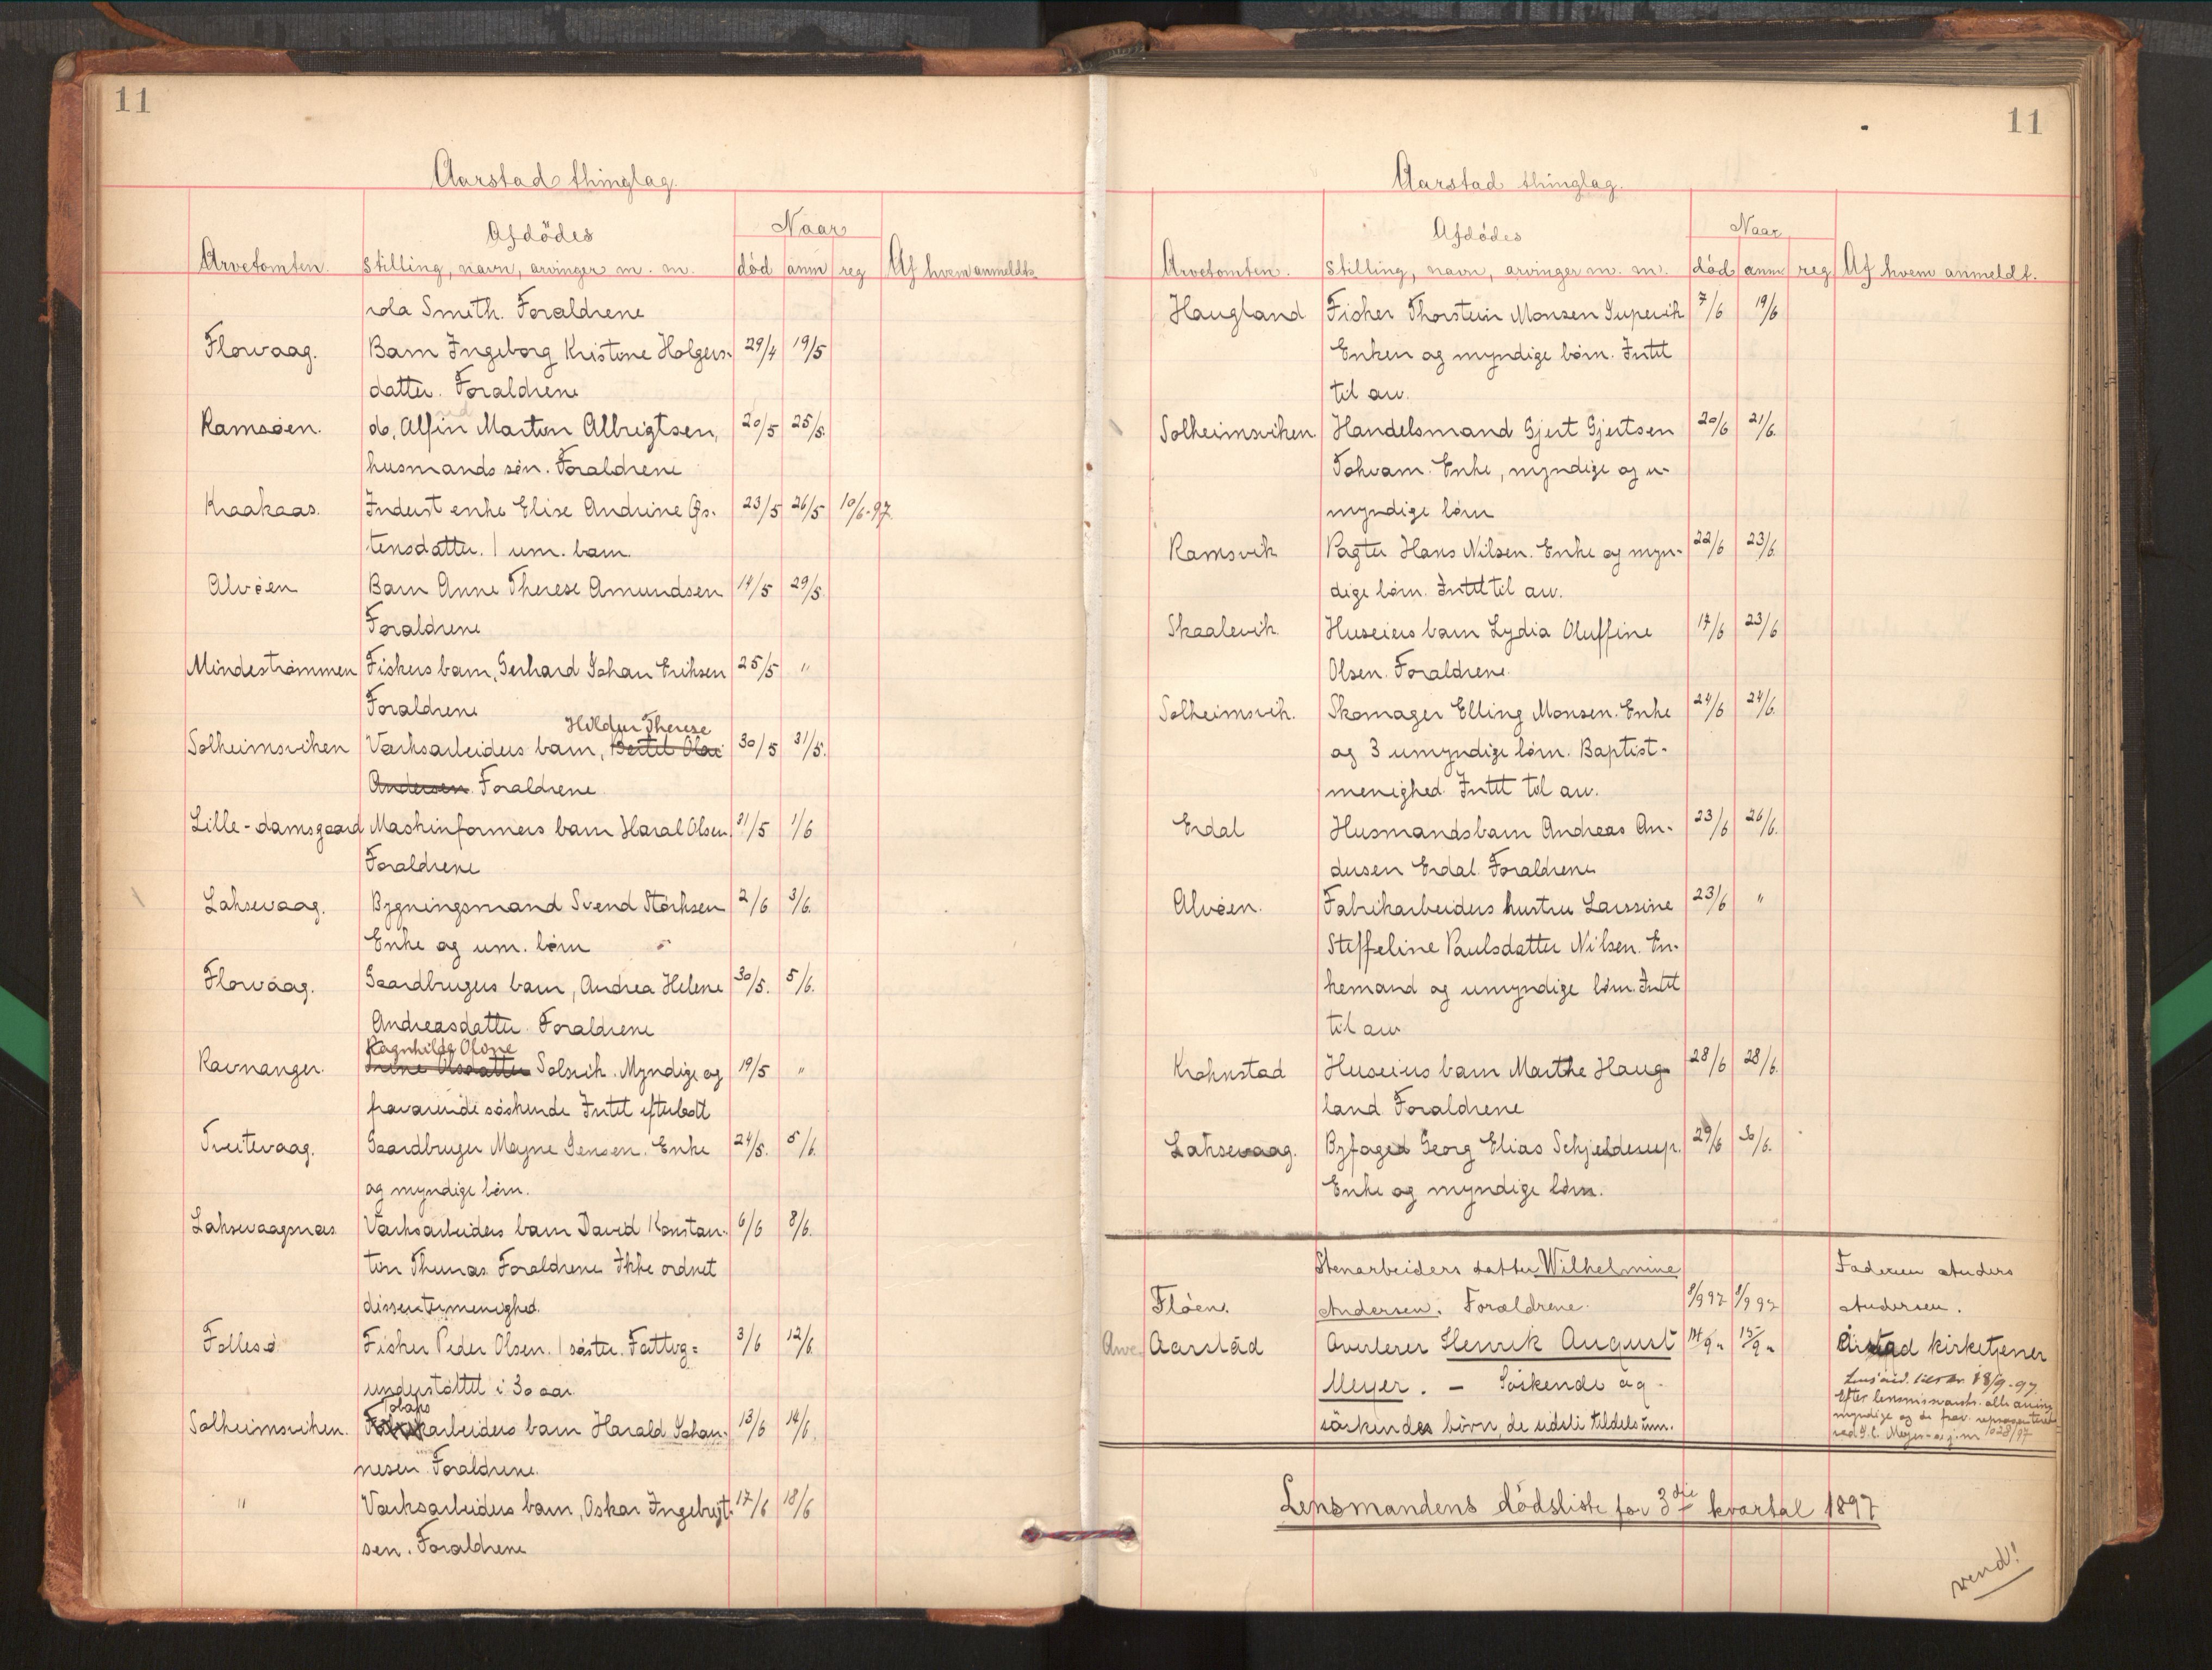 11
Aarstad thinglag.
Arvetomten. Afdödes stilling, navn, arvinger m. m. Naar död anm reg Af hvem anmeldt.
rda Smith. Foraldrene
Florvaag. Barn Ingeborg Kristine Holgers- 29/4 19/5
datter. Foraldrene
Ramsøen. do, Alfin Martin Albrigtsen, 20/5 25/5.
husmands søn. Foraldrene
Kraakaas. Inderst enke Elise Andrine Øs- 23/5 26/5 10/6-97.
tensdatter. 1 um. barn.
Alvøen Barn Anne Therese Amundsen 14/5 29/5.
Foraldrene
Mindestrømmen Fiskers barn, Gerhard Johan Eriksen 25/5 "
Foraldrene
Hildur Therese
Solheimsviken Værksarbeiders barn, Bertel Olai 30/5 31/5.
Andersen. Foraldrene.
Lille-damsgaard Maskinformers barn Haral Olsen. 31/5 1/6
Foraldrene
Laksevaag. Bygningsmand Svend Størksen 2/6 3/6.
Enke og um. børn
Florvaag. Gaardbrugers barn, Andrea Helene 30/5. 5/6.
Andreasdatter. Foraldrene
Ragnhilda Olsne
Ravnanger. Irene Olsdatter Solsvik. Myndige og 19/5 "
fraværende søskende Intet efterladt
Tveitevaag. Gaardbruger Magne Jensen. Enke 24/5. 5/6.
og myndige børn.
Laksevaagsnæs Værksarbeiders barn David Konstan- 6/6 8/6.
tin Thunæs. Foraldrene Ikke ordnet
dissentermenighed.
Follesø. Fisker Peder Olsen. 1 søster. Fattig= 3/6 12/6.
understøttet i 30 aar.
Tobaks
Solheimsviken. arbeiders barn Harald Johan- 13/6 14/6.
nesen. Foraldrene.
" Værksarbeiders barn, Oskar Ingebrigt- 17/6 18/6
sen. Foraldrene
11
Aarstad thinglag.
Arvetomten. Afdödes stilling, navn, arvinger m. m. Naar død anm reg Af hvem anmeldt.
Haugland Fisker Thorstein Monsen Supervik 7/6 19/6
Enken og myndige børn. Intet
til arv.
Solheimsviken. Handelsmand Gjert Gjertsen 20/6 21/6.
Tokvam. Enke, myndige og u-
myndige børn
Ramsvik Pagter Hans Nilsen. Enke og myn- 22/6 23/6.
dige børn. Intet til arv.
Skaalevik. Huseiers barn Lydia Oluffine 17/6 23/6
Olsen. Foraldrene.
Solheimsvik. Skomager Elling Monsen. Enke 24/6 24/6.
og 3 umyndige børn. Baptist-
menighed. Intet til arv.
Erdal Husmandsbarn Andreas An- 23/6 26/6.
dersen Erdal. Foraldrene
Alvøen. Fabrikarbeiders hustru Larssine 23/6 "
Steffeline Paulsdatter Nilsen. En-
kemand og umyndige børn. Intet
til arv
Krohnstad Huseiers barn Marthe Haug- 28/6 28/6.
land Foraldrene
Laksevaag. Byfoged Georg Elias Schjelderup. 29/6 30/6.
Enke og myndige børn.
Stenarbeiders datter Wilhelmine Faderen Anders
Fløen. Andersen. Forældrene. 8/9 97 8/9 97 Andersen.
Aarstad Overlærer Henrik August 14/9 " 15/9 " Årstad kirketjener
Meyer. - Søskende og
søskendes børn, de sidste tildels um.
18/9-97.
Lensmandens dödsliste for 3die kvartal 1897
vend!